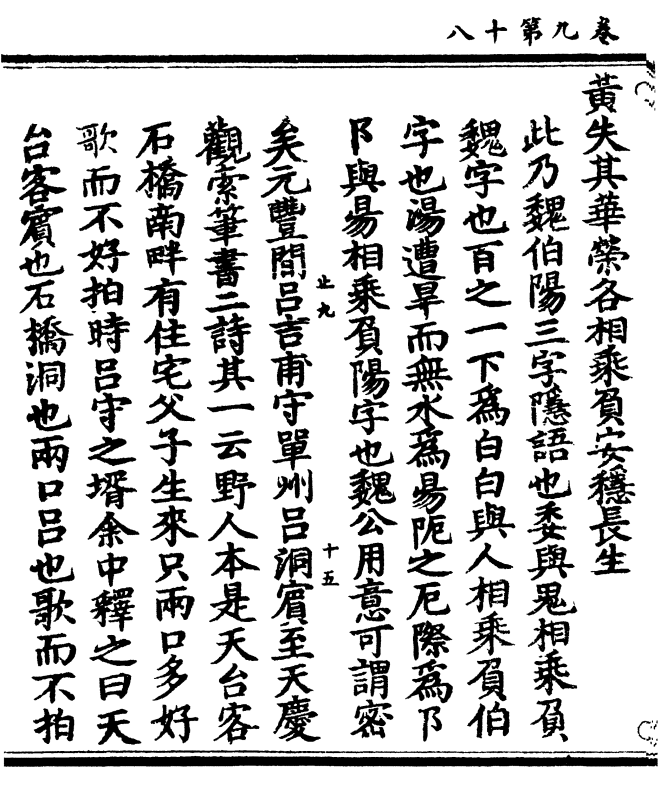 卷九第十八
黃失其華榮各相乘負安穩長生
此乃魏伯陽三字隱語也委與鬼相乘負
魏字也百之一下爲白白與人相乘負伯
字也湯遭旱而無水爲昜阨之厄際爲阝
阝與昜相乘負陽字也魏公用意可謂密
矣元豐間呂吉甫守單州呂洞賓至天慶
止九
十五
觀索筆書二詩其一云野人本是天台客
石橋南畔有住宅父子生來只兩口多好
歌而不好拍時呂守之壻余中釋之曰天
台客賓也石橋洞也兩口呂也歌而不拍